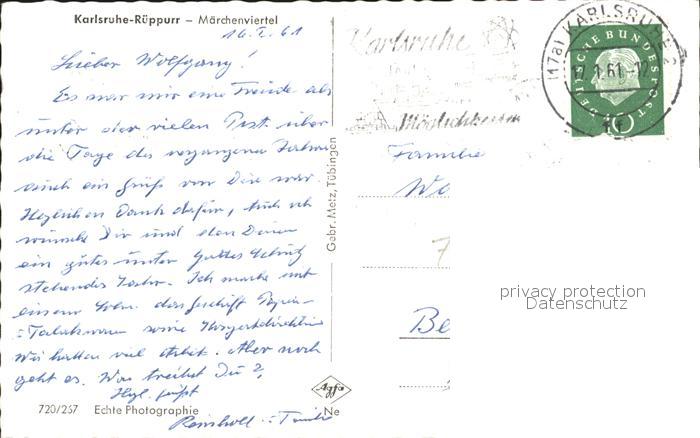 Karlsruhe-Rüppurr – Märchenviertel
16. I. 61
Lieber Wolfgang!
Es war mir eine Freude als
unter der vielen Post über
die Tage des vergangenen Jahres
auch ein Gruß von Dir war.
Herzlichen Dank dafür, auch ich
wünsche Dir und den Deinen
ein gutes unter Gottes Schutz
stehendes Jahr. Ich mache mit
einem das Geschäft Papier-
Tabakwaren sowie
Wir hatten viel Arbeit. Aber noch
geht es. Was treibst Du?
Hzl. grüßt
Reinhold
720/257 Echte Photographie
Ne
Gebr. Metz, Tübingen
Agfa
Karlsruhe
(17a) KARLSRUHE 2
17.1.61.-12
DEUTSCHE BUNDESPOST
10
Familie
Wo
7
Be
privacy protection
Datenschutz